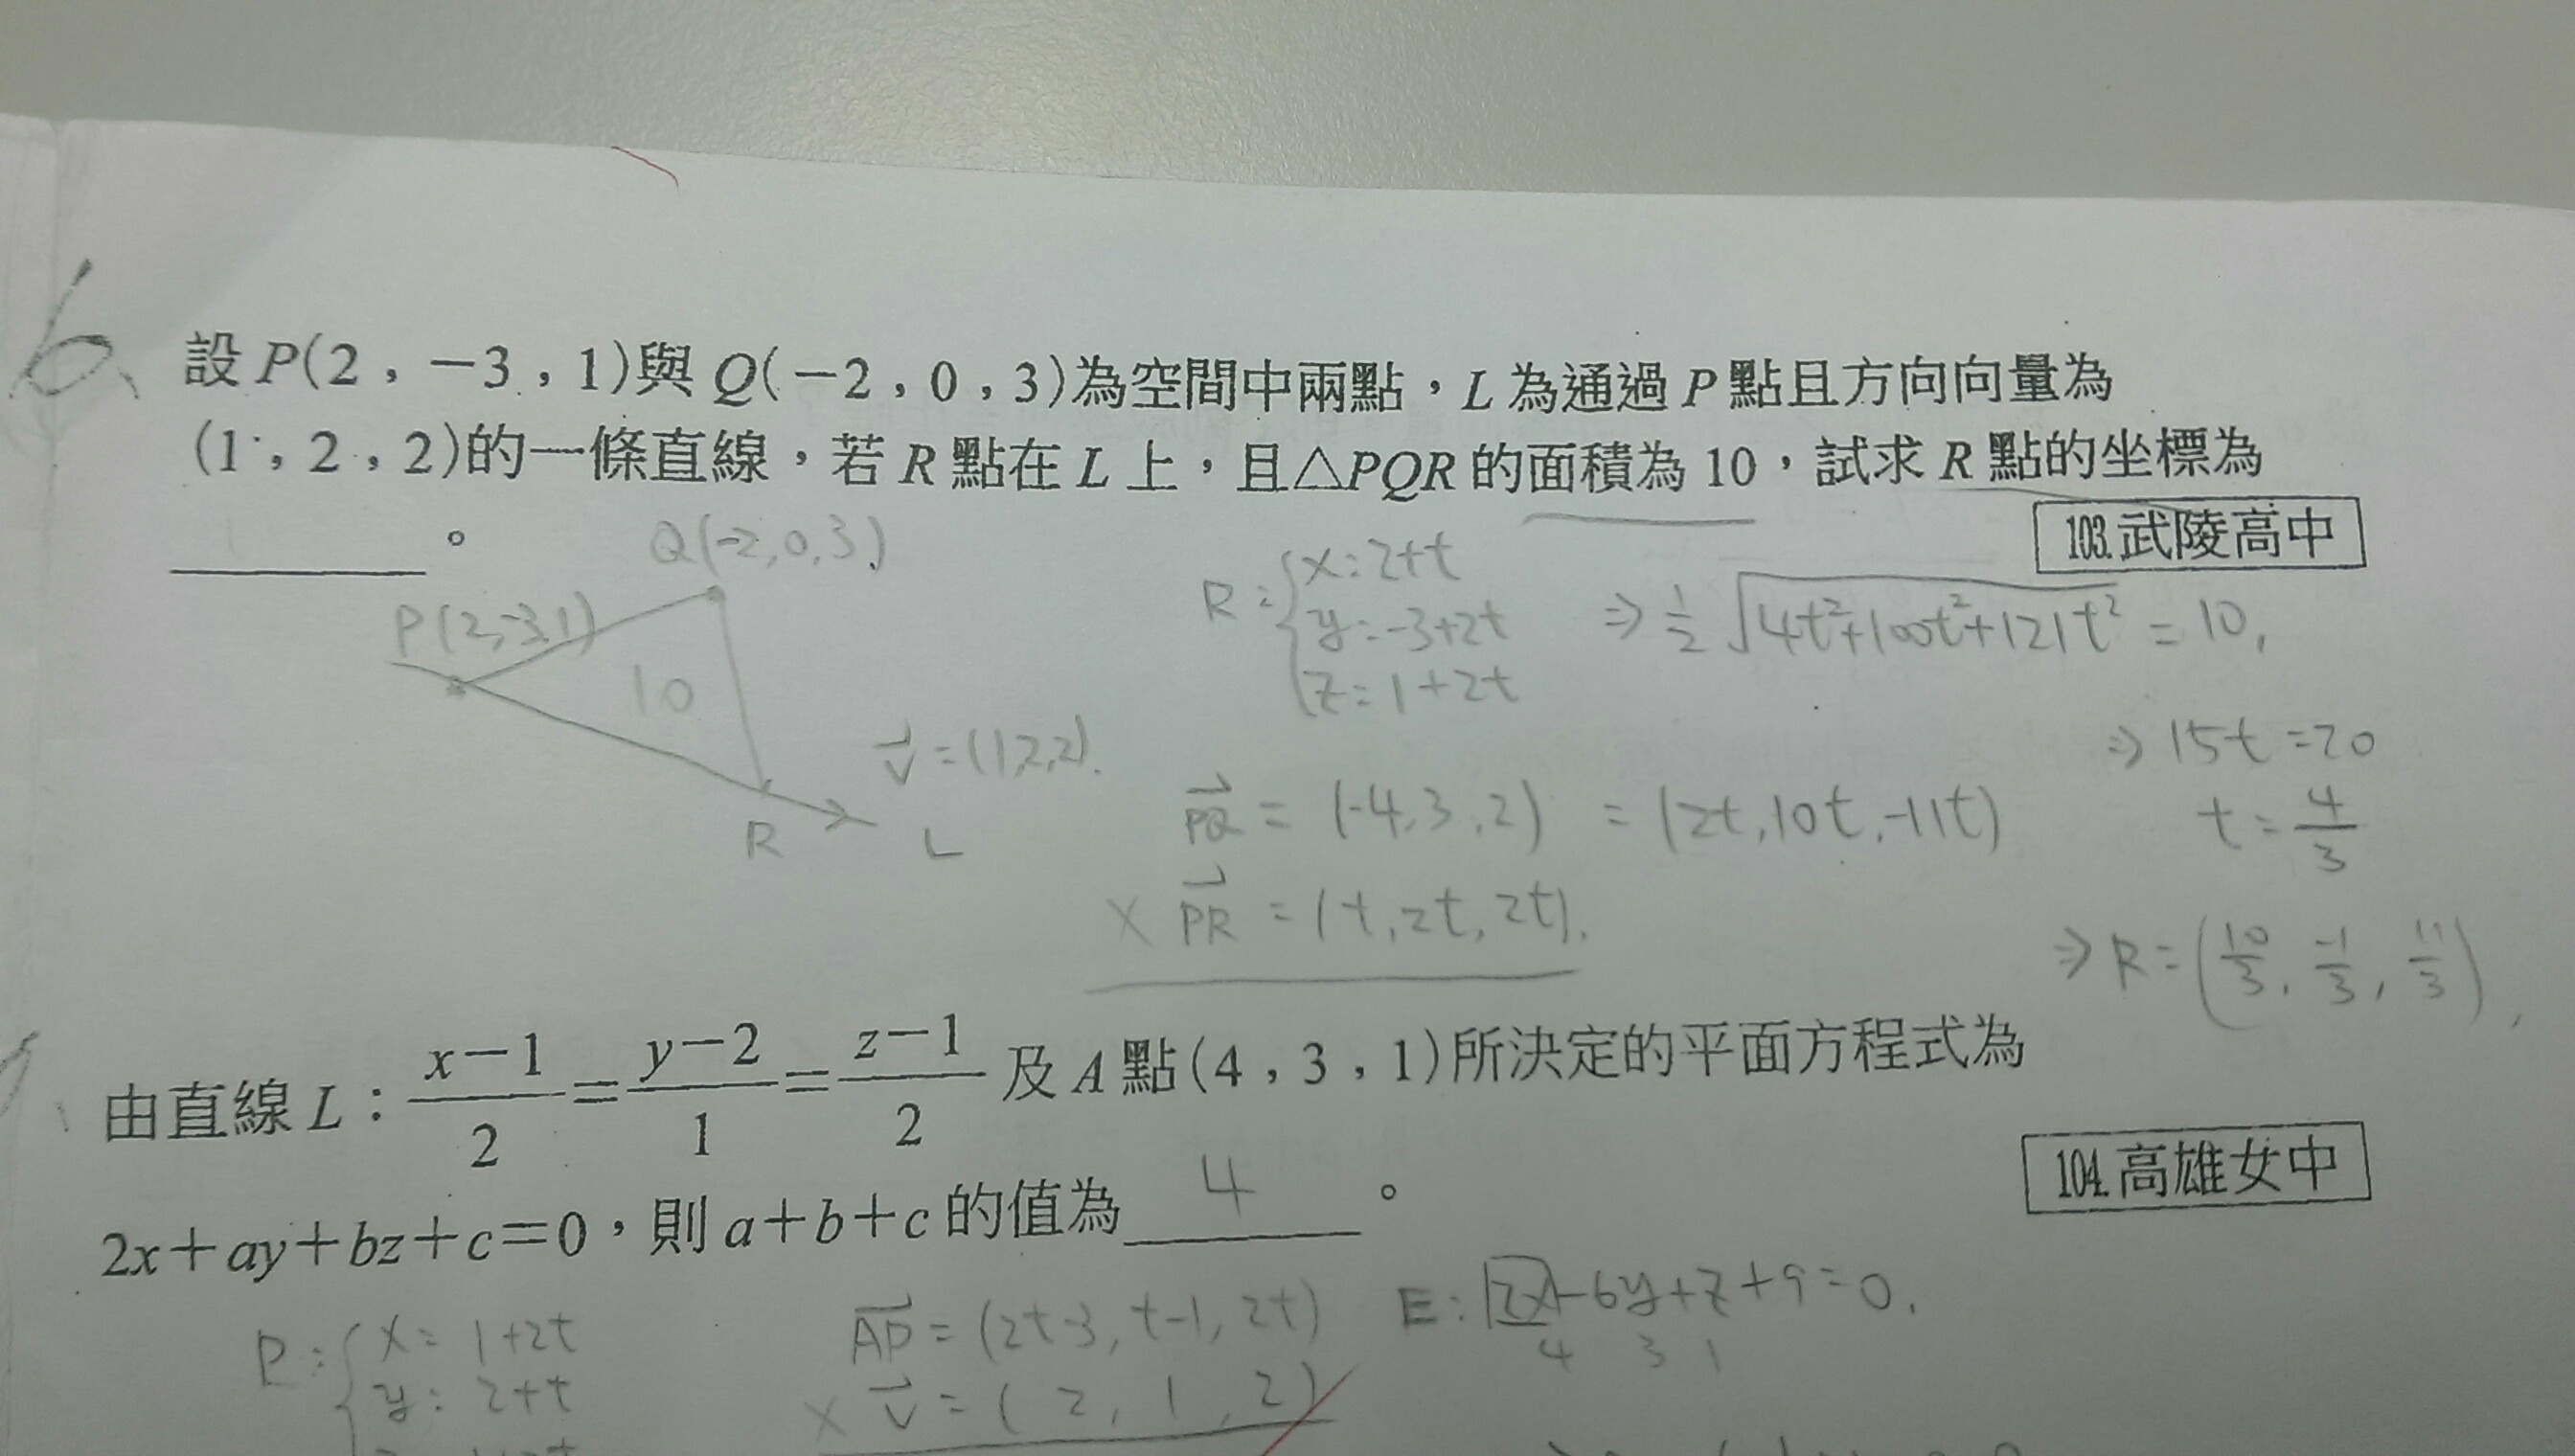 6、
設P(2,-3,1)與Q(-2,0,3)為空間中兩點,L為通過P點且方向向量為
(1,2,2)的一條直線,若R點在L上,且△PQR的面積為10,試求R點的坐標為
________。
103.武陵高中
Q(-2,0,3)
P(2,-3,1)
10
R
L
v⃗=(1,2,2).
R:{x=2+t
y=-3+2t
z=1+2t
⇒ 1/2 √(4t²+100t²+121t²) = 10,
⇒ 15t=20
t=4/3
PQ⃗ = (-4,3,2) = (2t,10t,-11t)
× PR⃗ = (t,2t,2t).
⇒ R=(10/3, -1/3, 11/3),
由直線L:(x-1)/2=(y-2)/1=(z-1)/2及A點(4,3,1)所決定的平面方程式為
2x+ay+bz+c=0,則a+b+c的值為 4 。
104.高雄女中
P:{x=1+2t
y=2+t
AP⃗=(2t-3,t-1,2t)
× v⃗=(2,1,2)
E:2x-6y+z+9=0,
4 3 1